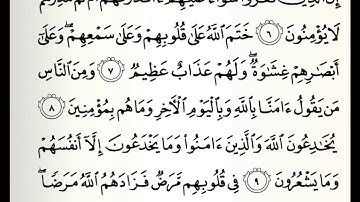 إِنَّ ٱلَّذِينَ كَفَرُوا۟ سَوَآءٌ عَلَيْهِمْ
لَا يُؤْمِنُونَ ٦ خَتَمَ ٱللَّهُ عَلَىٰ قُلُوبِهِمْ وَعَلَىٰ سَمْعِهِمْ ۖ وَعَلَىٰٓ
أَبْصَٰرِهِمْ غِشَٰوَةٌ ۖ وَلَهُمْ عَذَابٌ عَظِيمٌ ٧ وَمِنَ ٱلنَّاسِ
مَن يَقُولُ ءَامَنَّا بِٱللَّهِ وَبِٱلْيَوْمِ ٱلْءَاخِرِ وَمَا هُم بِمُؤْمِنِينَ ٨
يُخَٰدِعُونَ ٱللَّهَ وَٱلَّذِينَ ءَامَنُوا۟ وَمَا يَخْدَعُونَ إِلَّآ أَنفُسَهُمْ
وَمَا يَشْعُرُونَ ٩ فِى قُلُوبِهِم مَّرَضٌ فَزَادَهُمُ ٱللَّهُ مَرَضًا ۖ